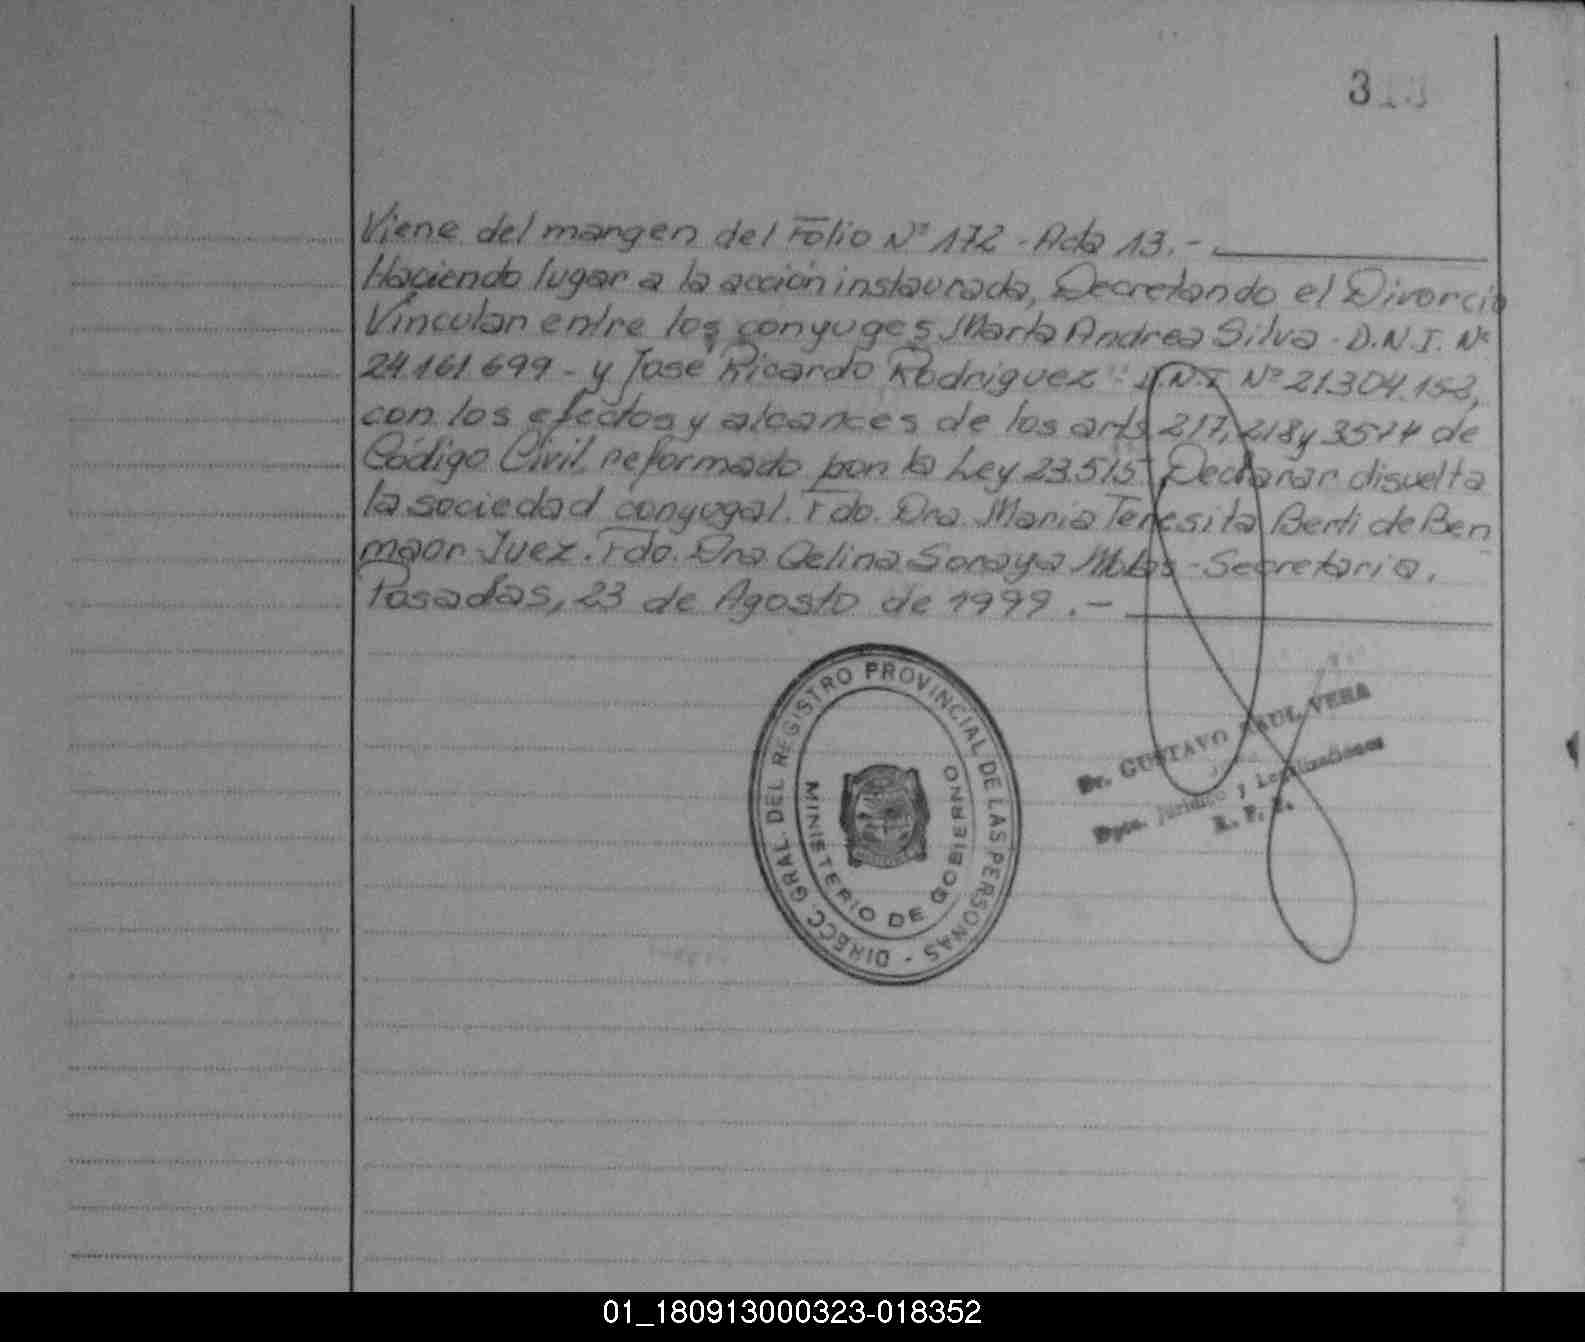 3
Viene del margen del Folio Nº 172 - Acta 13.-
Haciendo lugar a la acción instaurada, Decretando el Divorcio
Vincular entre los conyuges Marta Andrea Silva - D.N.I. Nº
24.161.699 - y José Ricardo Rodriguez - D.N.I Nº 21.304.152,
con los efectos y alcances de los arts 217, 218 y 3574 de
Código Civil, reformado por la Ley 23.515. Declarar disuelta
la sociedad conyugal. Fdo. Dra. Maria Teresita Berti de Ben
maor Juez. Fdo. Dra Celina Soraya - Secretaria.
Posadas, 23 de Agosto de 1999.-
DIRECC. GRAL. DEL REGISTRO PROVINCIAL DE LAS PERSONAS -
MINISTERIO DE GOBIERNO
Dr. GUSTAVO RAUL VERA
Dpto. Jurídico y Legalizaciones
R. P. P.
01_180913000323-018352